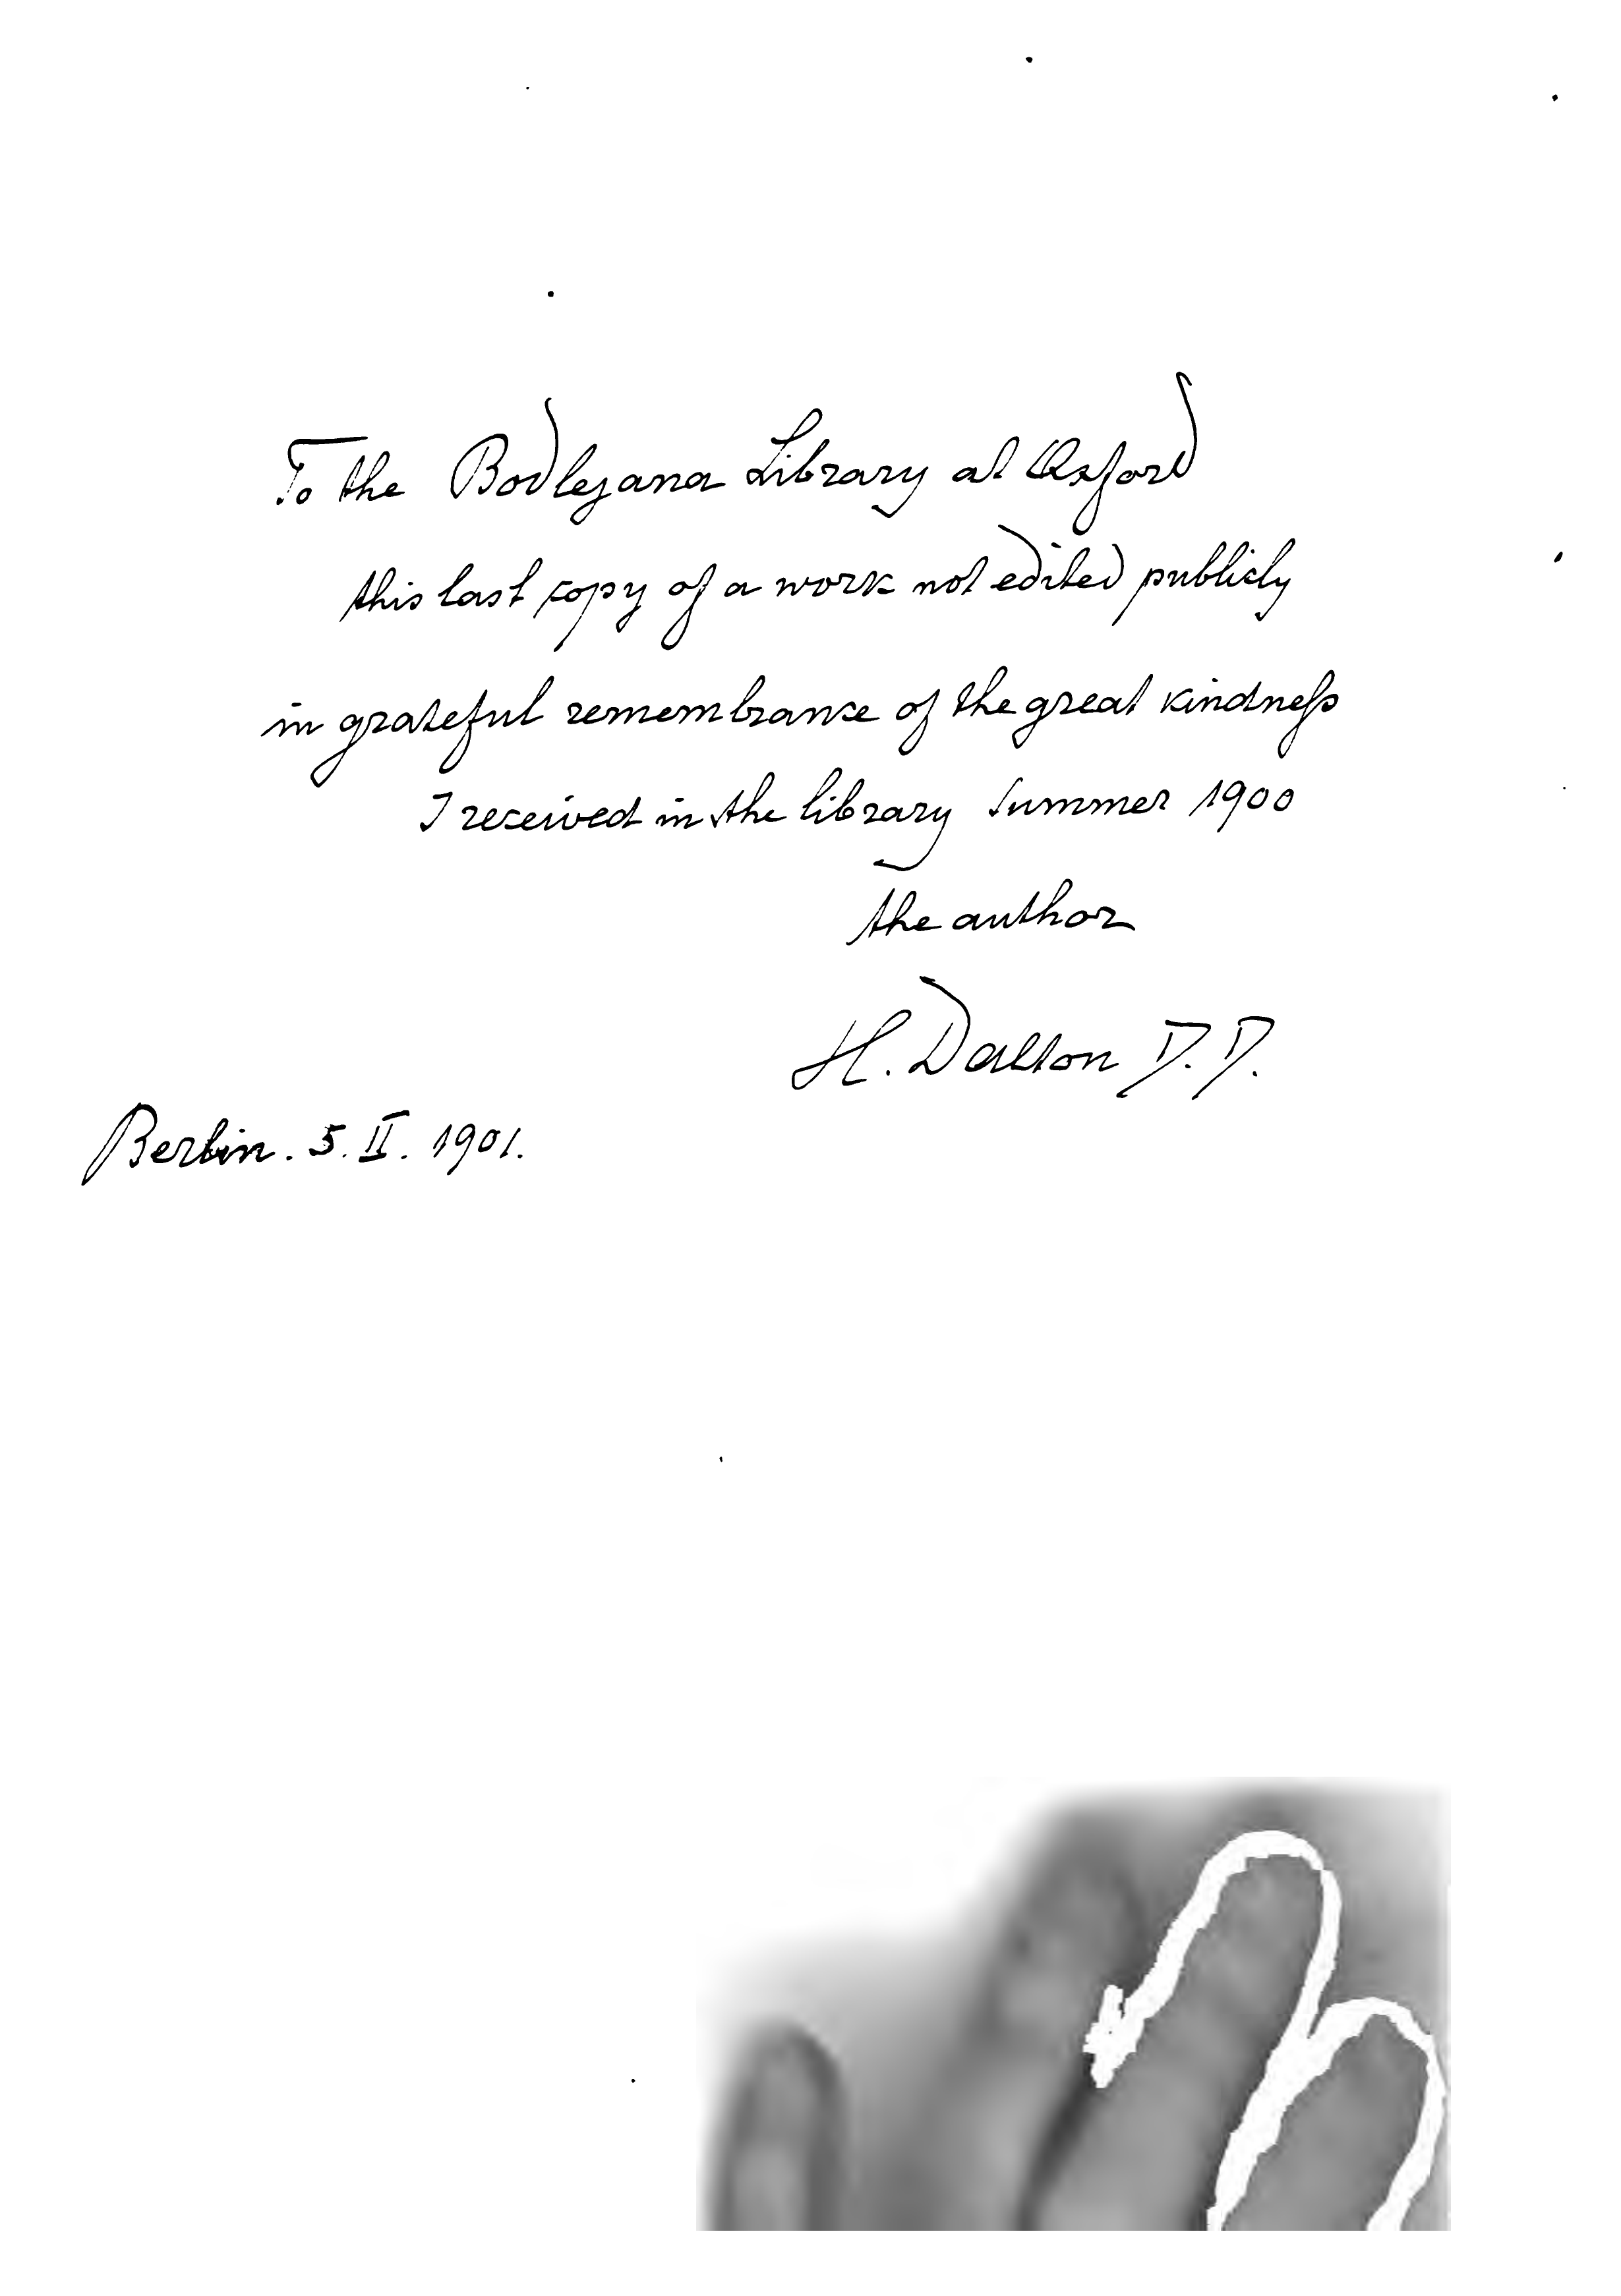 To the Bodlejana Library at Oxford
this last copy of a work not edited publicly
in grateful remembrance of the great kindneſs
I received in the library Summer 1900
the author
H. Dalton D. D.
Berlin. 5. II. 1901.